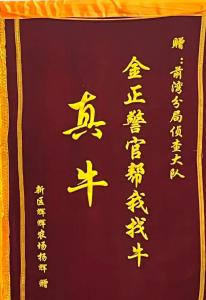 赠：前湾分局侦查大队
金正警官帮我找牛
真牛
新区辉辉农场杨辉 赠